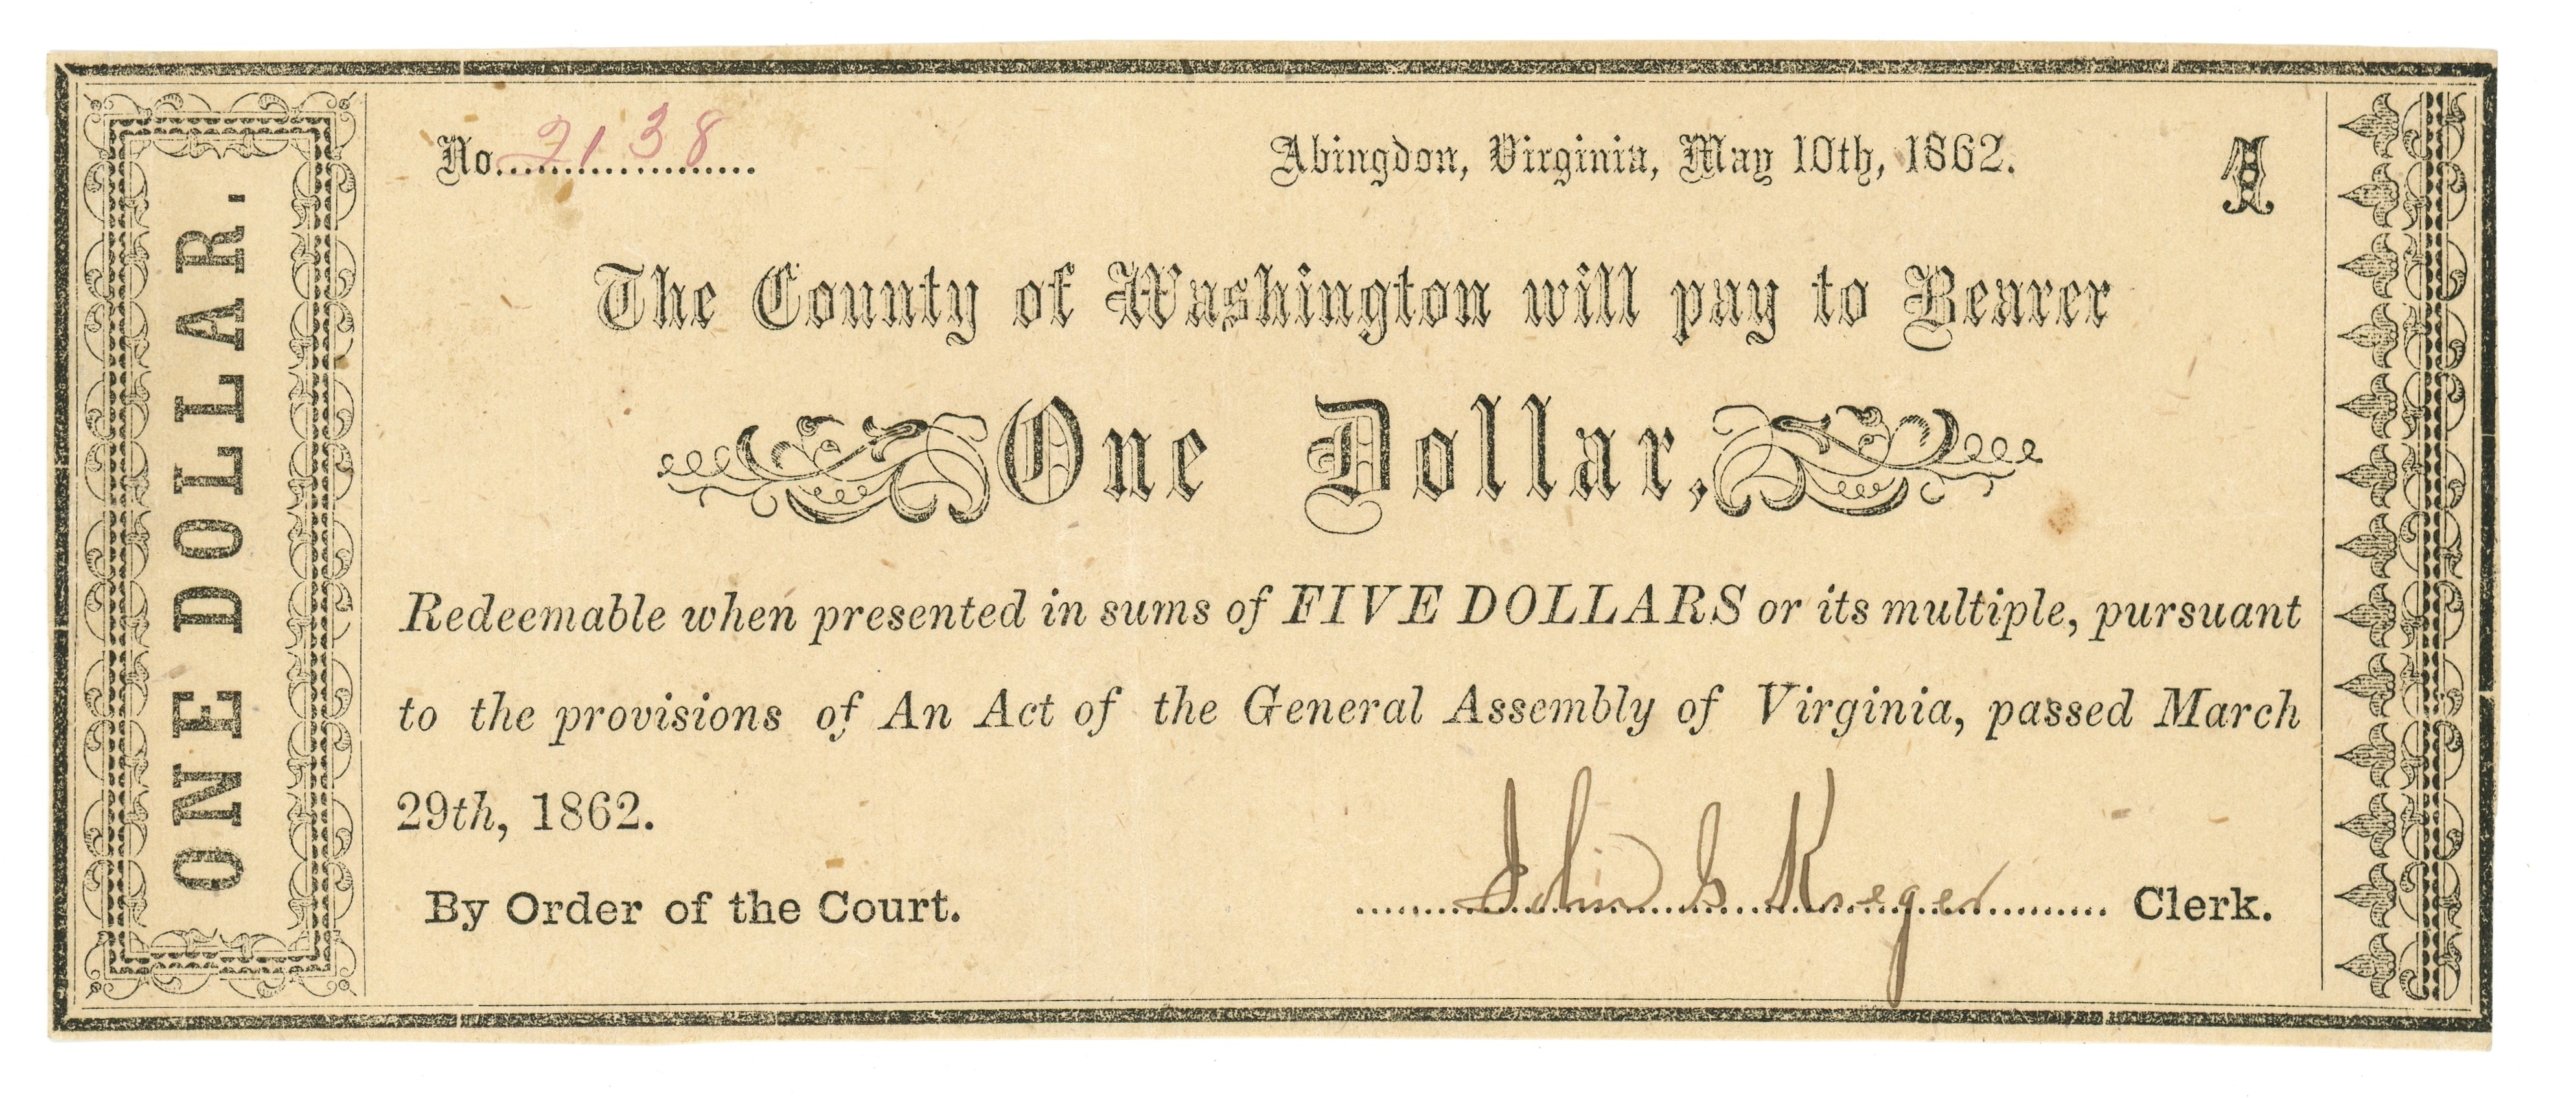 ONE DOLLAR.
No. 2138
Abingdon, Virginia, May 10th, 1862.
1
The County of Washington will pay to Bearer
One Dollar,
Redeemable when presented in sums of FIVE DOLLARS or its multiple, pursuant
to the provisions of An Act of the General Assembly of Virginia, passed March
29th, 1862.
By Order of the Court.
John G Kreger Clerk.